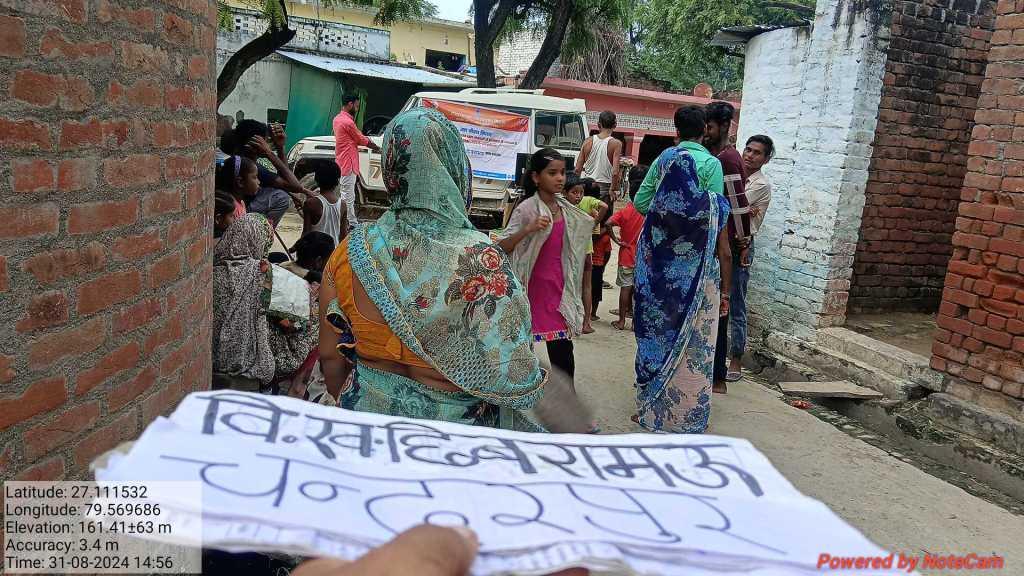 वि.ख.छिबरामऊ
चन्दरपुर
Latitude: 27.111532
Longitude: 79.569686
Elevation: 161.41±63 m
Accuracy: 3.4 m
Time: 31-08-2024 14:56
Powered by NoteCam